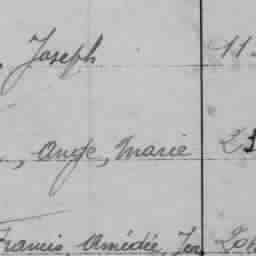 , Joseph 11
, Ange, Marie 23
Francis, Amédée, Jea 20